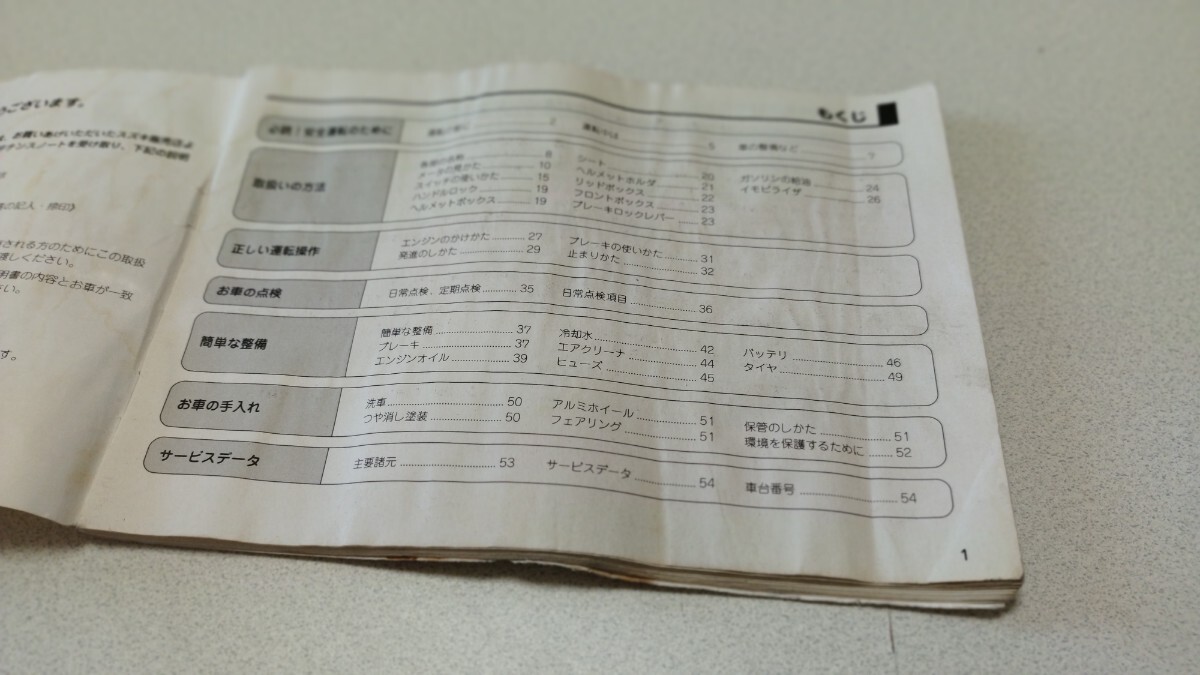 ございます。
お買いあげいただいたスズキ販売店よ
テナンスノートを受け取り、下記の説明
の記入・捺印》
される方のためにこの取扱
渡しください。
明書の内容とお車が一致
さい。
す。
もくじ
必読！安全運転のために
2
5
車の整備など 7
取扱いの方法
各部の名称 8
メータの見かた 10
スイッチの使いかた 15
ハンドルロック 19
ヘルメットボックス 19
シート 20
ヘルメットホルダ 21
リッドボックス 22
フロントボックス 23
ブレーキロックレバー 23
ガソリンの給油 24
イモビライザ 26
正しい運転操作
エンジンのかけかた 27
発進のしかた 29
ブレーキの使いかた 31
止まりかた 32
お車の点検
日常点検、定期点検 35
日常点検項目 36
簡単な整備
簡単な整備 37
ブレーキ 37
エンジンオイル 39
冷却水 42
エアクリーナ 44
ヒューズ 45
バッテリ 46
タイヤ 49
お車の手入れ
洗車 50
つや消し塗装 50
アルミホイール 51
フェアリング 51
保管のしかた 51
環境を保護するために 52
サービスデータ
主要諸元 53
サービスデータ 54
車台番号 54
1